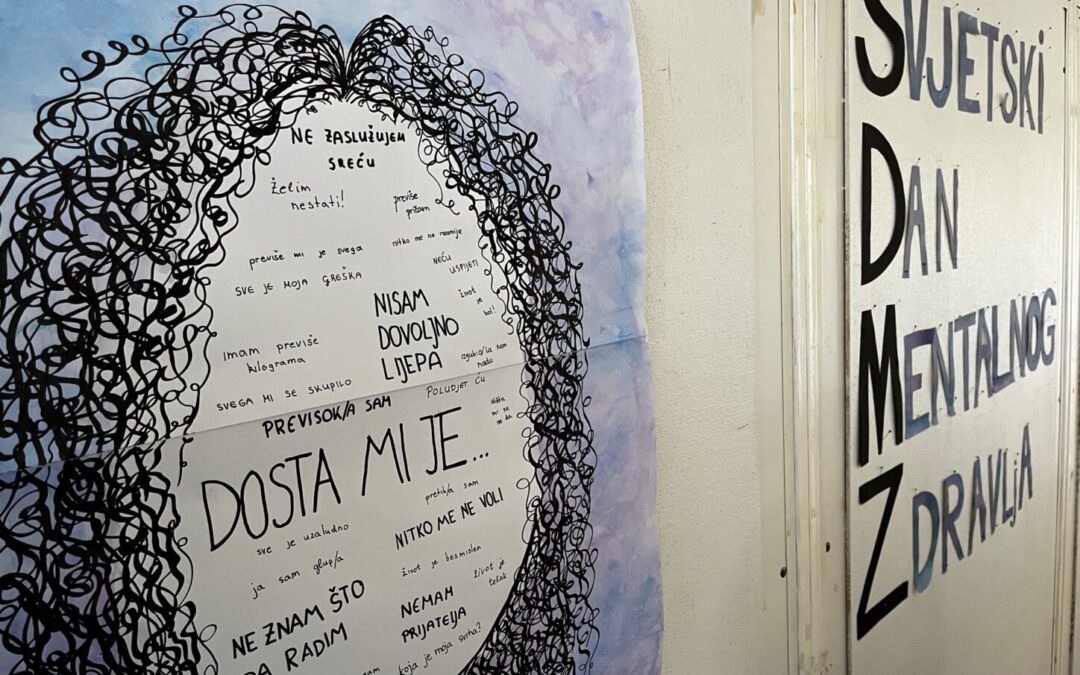 NE ZASLUŽUJEM
SREĆU
Želim
nestati!
previše
pričam
previše mi je svega
nitko me ne razumije
SVE JE MOJA GREŠKA
NEĆU
USPJETI
NISAM
DOVOLJNO
LIJEPA
život
je
bol!
Imam previše
kilograma
izgubio/la sam
nadu
SVEGA MI SE SKUPILO
POLUDJET ĆU
PREVISOK/A SAM
Ništa
mi se
ne da
DOSTA MI JE...
pretih/a sam
sve je uzaludno
NITKO ME NE VOLI
ja sam glup/a
život je besmislen
život je
težak
NE ZNAM ŠTO
DA RADIM
NEMAM
PRIJATELJA
koja je moja svrha?
SVJETSKI
DAN
MENTALNOG
ZDRAVLJA